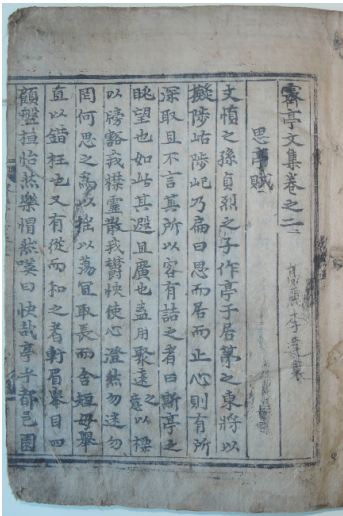 霽亭文集卷之二
思亭賦
文憤之孫貞烈之子作亭于居第之東將以
擬陟岵陟屺乃扁曰思而居而止心則有所
深取且不言其所以客有詰之者曰斯亭之
眺望也如此其遐且廣也盍用聚遠之意以標
以牓豁我襟靈散我鬱怏使心澄然勿迷勿
罔何思之爲以搖以蕩宜取長而舍短毋擧
直以錯枉也又有從而和之者軒眉東目四
顧盤桓怡然樂惝然嘆曰快哉亭乎都邑園